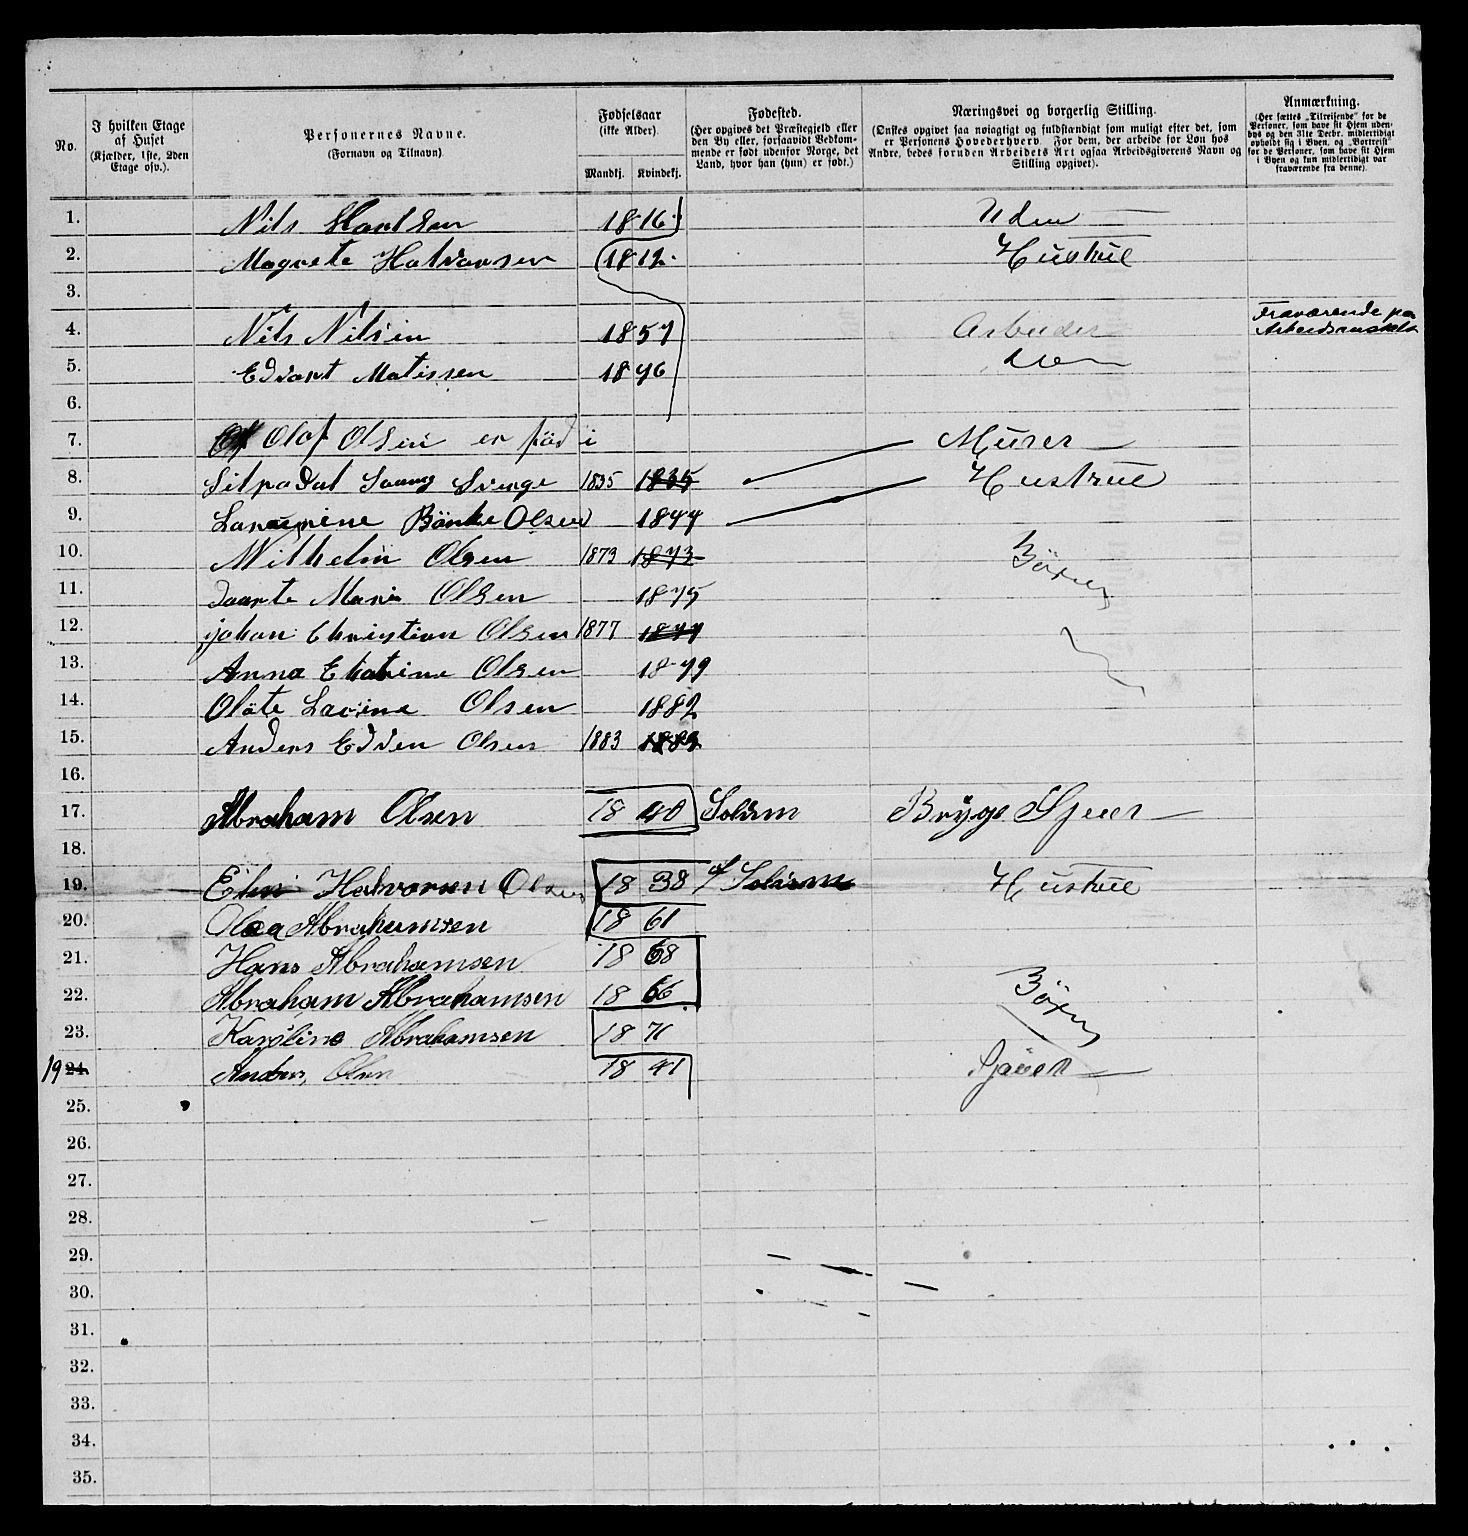 No.
I hvilken Etage af Huset (Kjælder, 1ste, 2den Etage osv.).
Personernes Navne. (Fornavn og Tilnavn)
Fødselsaar (ikke Alder).
Mandkj. Kvindekj.
Fødested. (Her opgives det Præstegjeld eller den By eller, forsaavidt Vedkommende er født udenfor Norge, det Land, hvor han (hun) er født.)
Næringsvei og borgerlig Stilling. (Ønskes opgivet saa nøiagtigt og fuldstændigt som muligt efter det, som er Personens Hovederhverv. For dem, der arbeide for Løn hos Andre, bedes foruden Arbeidets Art ogsaa Arbeidsgiverens Navn og Stilling opgivet).
Anmærkning. (Her sættes „Tilreisende" for de Personer, som have sit Hjem udenbys og den 31te Decbr. midlertidigt opholdt sig i Byen, og „Bortreist" for de Personer, som have sit Hjem i Byen og kun midlertidigt var fraværende fra denne).
1. Nils 1816 Uden
2. Magrete Halvorsen 1812 Hustrue
3.
4. Nils Nilsin 1857 Arbeider Fraværende paa Arbeidsanstalt
5. Edvart Matissen 1846
6.
7. Olaf Olsen er föd i Murer
8. 1835 1835 Hustrue
9. Olsen 1844
10. Wilhelm Olsen 1873 1873 Börn
11. Marie Olsen 1875
12. johan Christian Olsen 1877 1877
13. Anna Olsen 1879
14. Oläte Lavine Olsen 1882
15. Anders Olsen 1883 1883
16.
17. Abraham Olsen 1840 Solum Brygs Sjouer
18.
19. Halvorsen Olsen 1838 Solum Hustrue
20. Abrahamsen 1861
21. Hans Abrahamsen 1868
22. Abraham Abrahamsen 1866 Börn
23. Karoline Abrahamsen 1871
19 24. Anders Olsen 1841 Sjöuer
25.
26.
27.
28.
29.
30.
31.
32.
33.
34.
35.